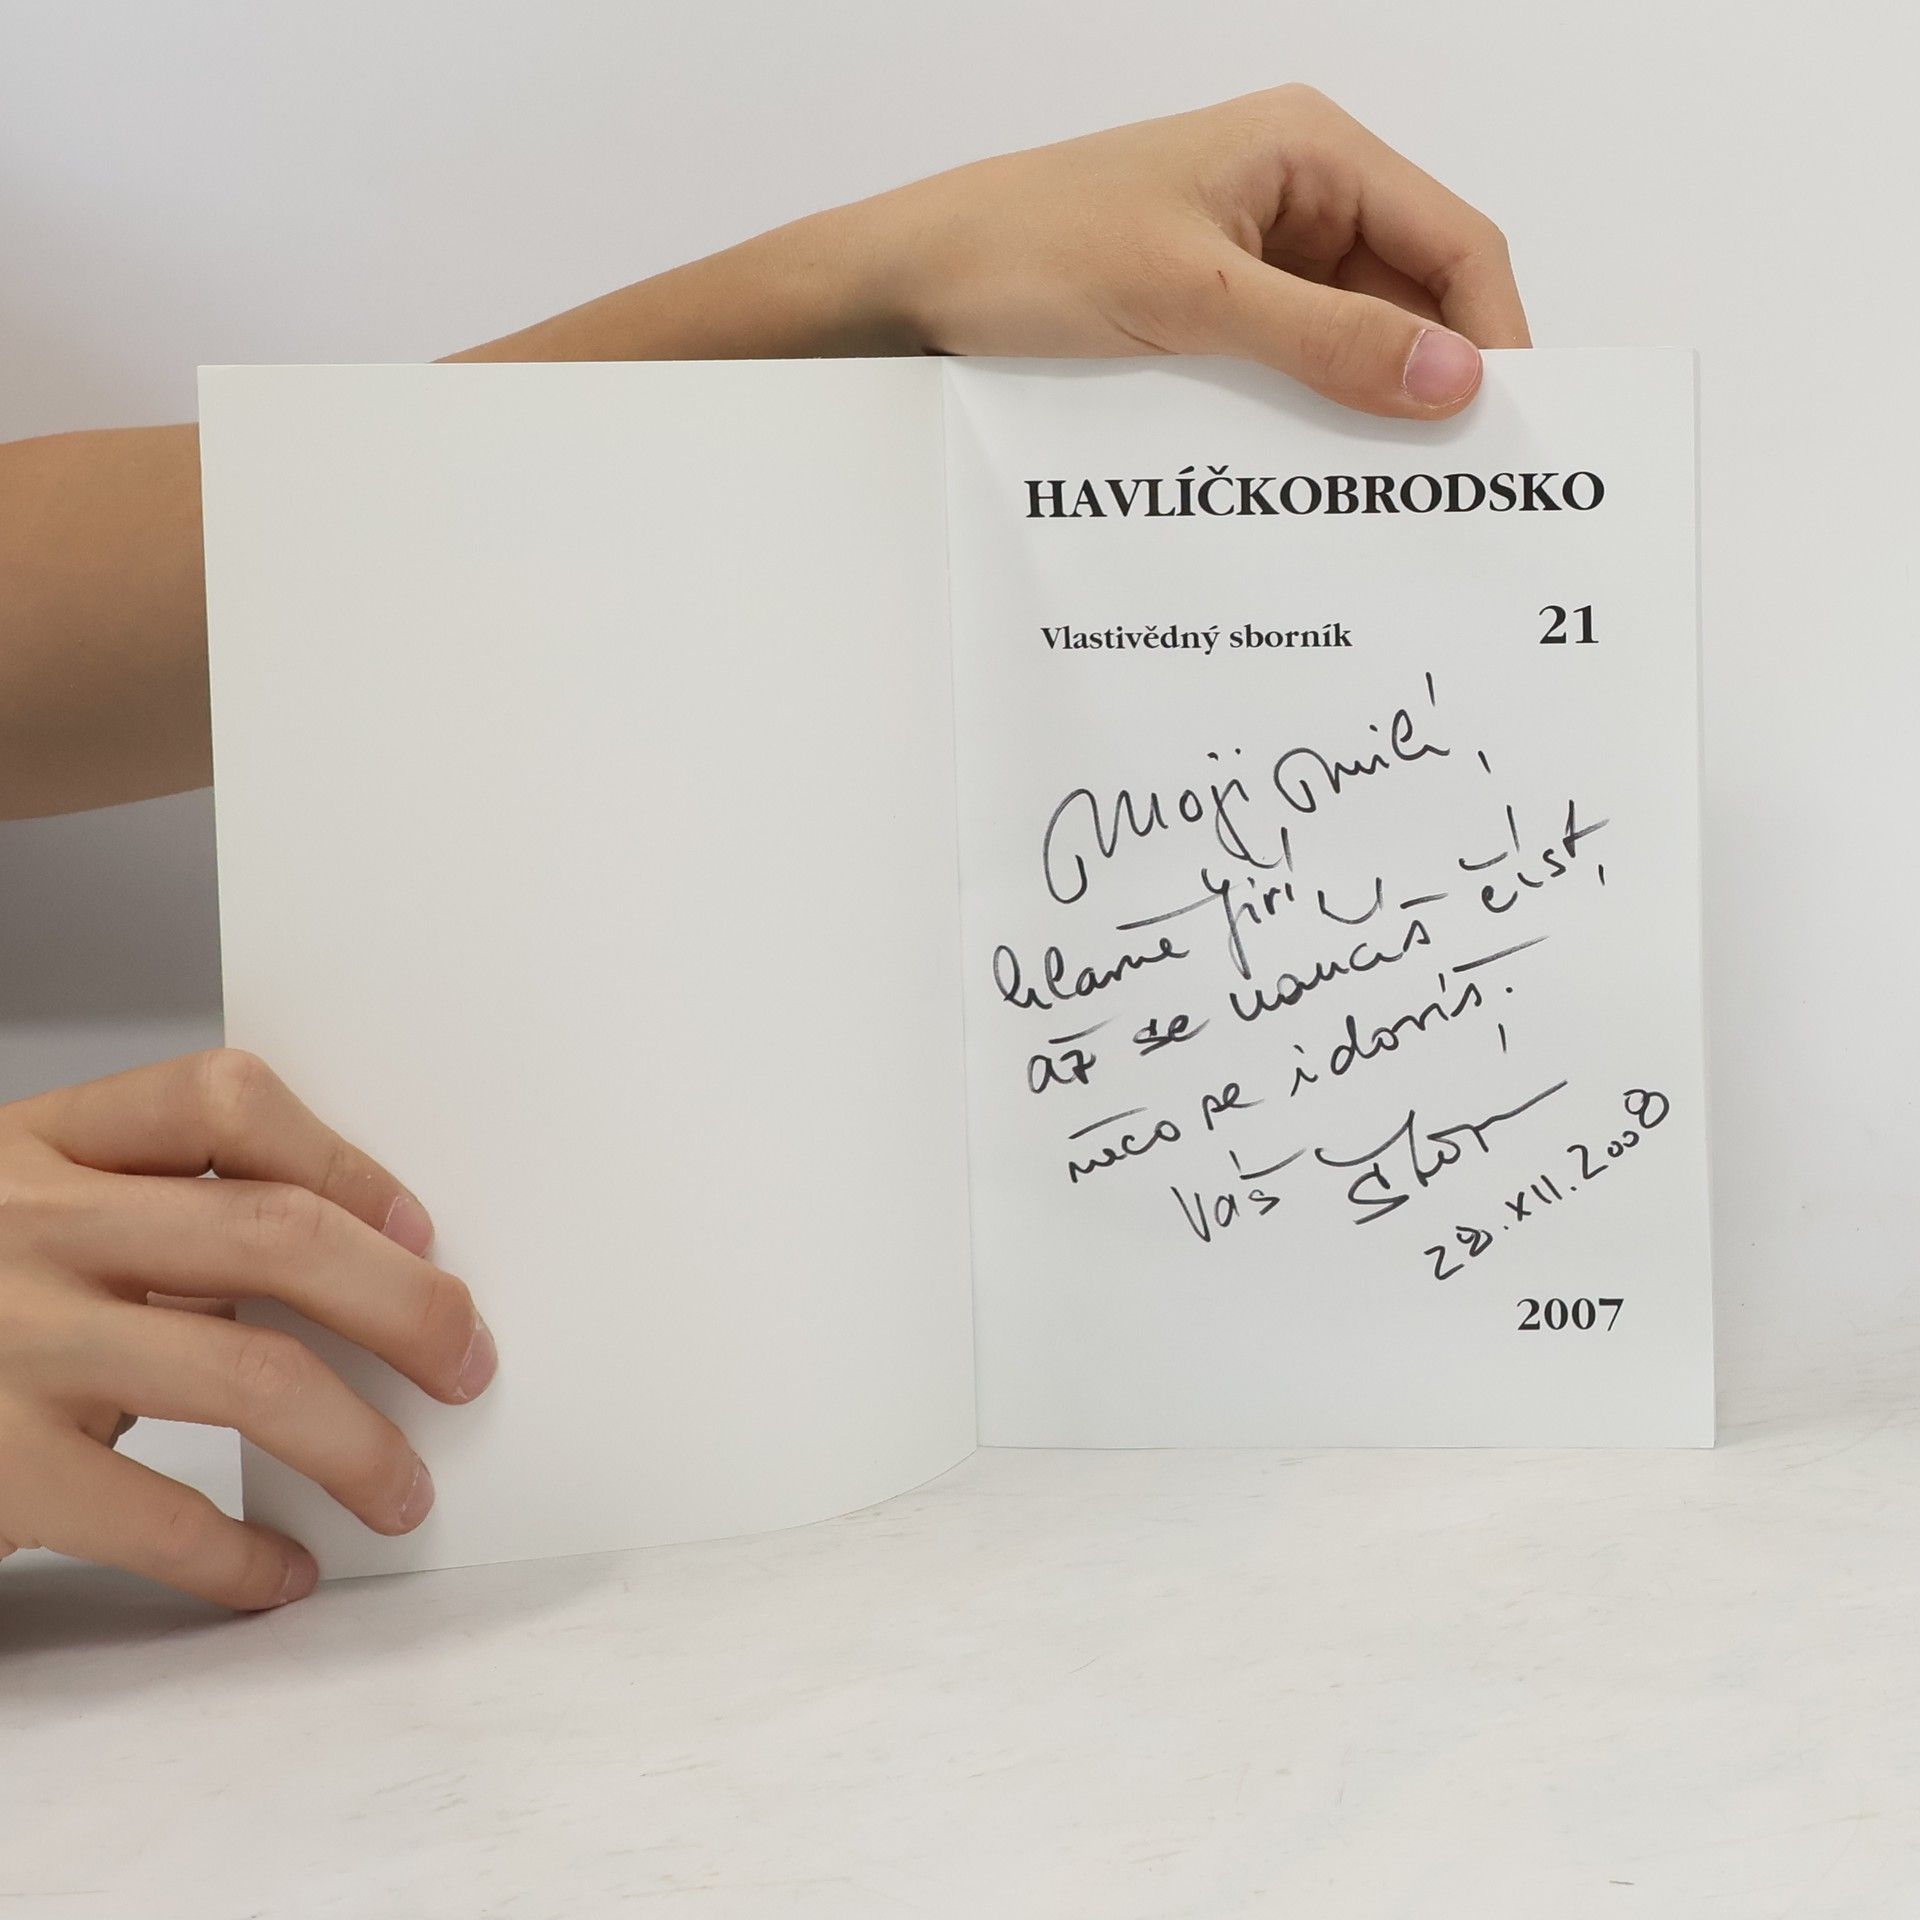 HAVLÍČKOBRODSKO
Vlastivědný sborník 21
Moji milí,
hlavně Jiří,
až se naučíš číst,
něco se i dovíš.
Váš
28.XII.2008
2007